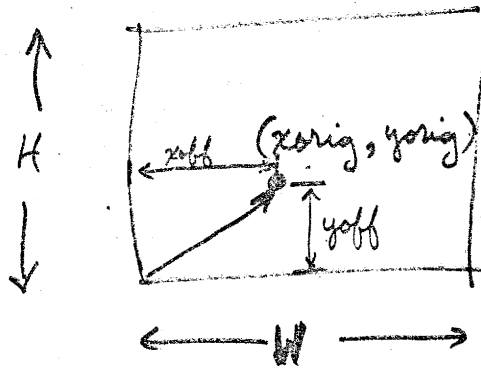 H
xoff
(xorig, yorig)
yoff
W